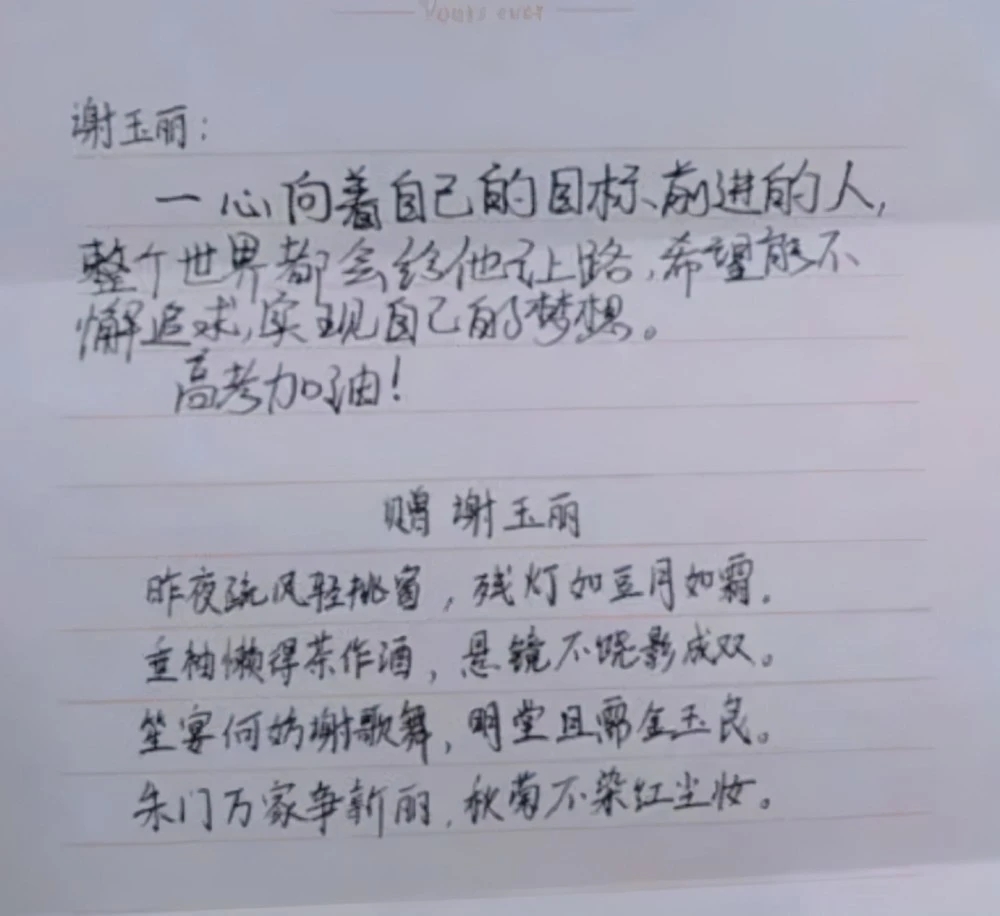 Yours ever
谢玉丽:
一心向着自己的目标前进的人,
整个世界都会给他让路,希望能不
懈追求,实现自己的梦想。
高考加油!
赠谢玉丽
昨夜疏风轻挑窗,残灯如豆月如霜。
垂袖懒得茶作酒,悬镜不晓影成双。
笙宴何妨谢歌舞,明堂且需金玉良。
朱门万家争新丽,秋菊不染红尘妆。